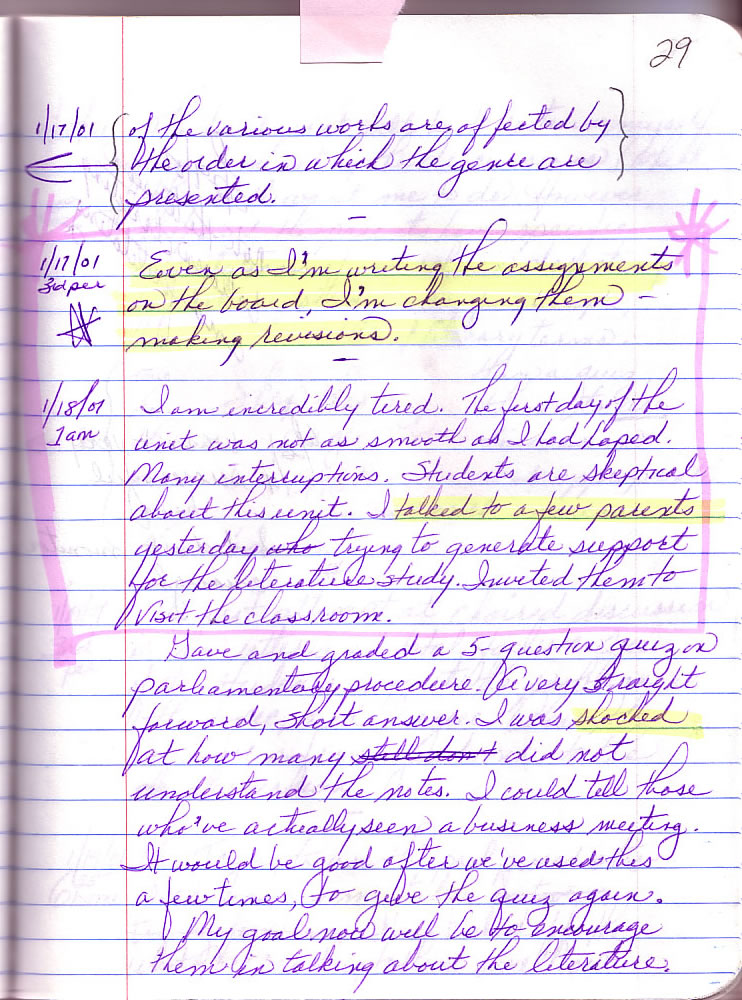 29
1/17/01 of the various works are affected by
the order in which the genre are
presented.
1/17/01 Even as I'm writing the assignments
3rd per on the board, I'm changing them –
making revisions.
1/18/01 I am incredibly tired. The first day of the
1am unit was not as smooth as I had hoped.
Many interruptions. Students are skeptical
about this unit. I talked to a few parents
yesterday who trying to generate support
for the literature study. Invited them to
visit the classroom.
Gave and graded a 5-question quiz on
parliamentary procedure. A very straight
forward, short answer. I was shocked
at how many still don't did not
understand the notes. I could tell those
who've actually seen a business meeting.
It would be good after we've used this
a few times, to give the quiz again.
My goal now will be to encourage
them in talking about the literature.